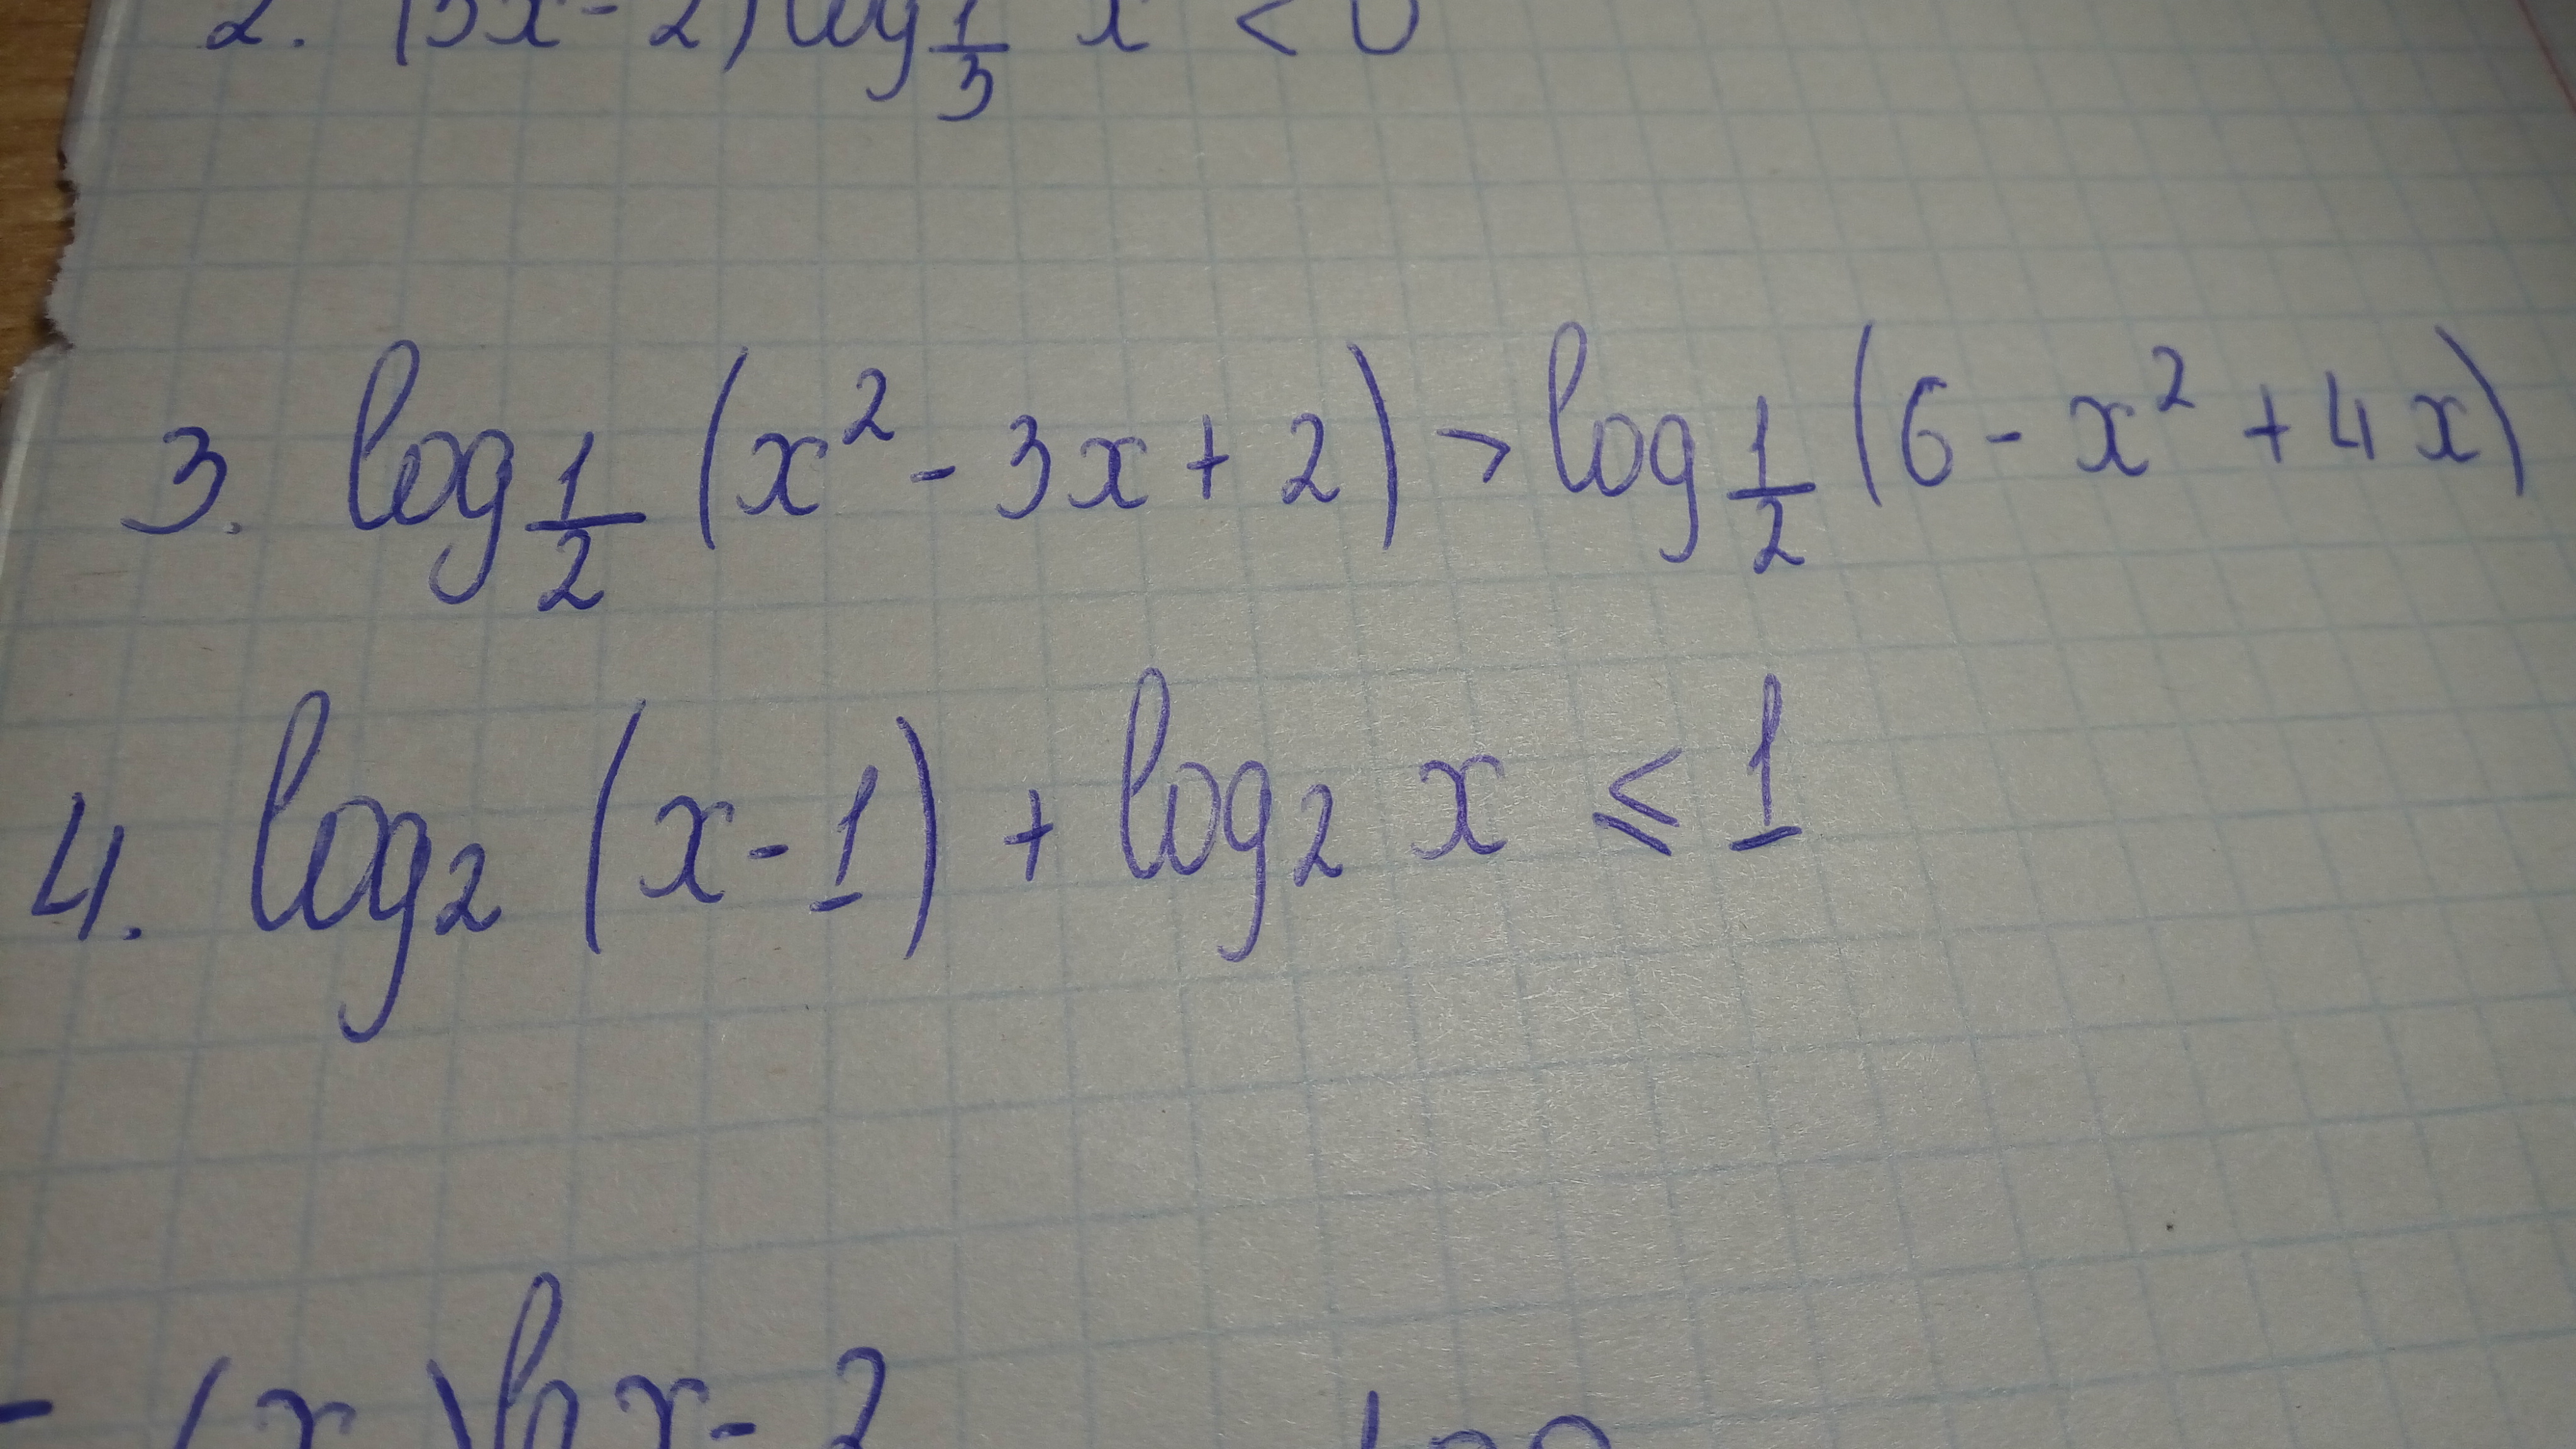 2. (3x-2) log_{1/3} x < 0
3. log_{1/2} (x² - 3x + 2) > log_{1/2} (6 - x² + 4x)
4. log₂ (x-1) + log₂ x ≤ 1